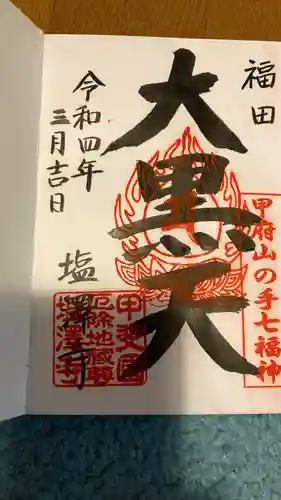 福田
甲府山の手七福神
大黒天
令和四年
三月吉日
塩澤寺
甲斐国
厄除地蔵尊
塩澤寺